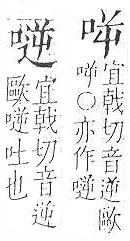 宜戟切音逆歐
○亦作
宜戟切音逆
歐吐也